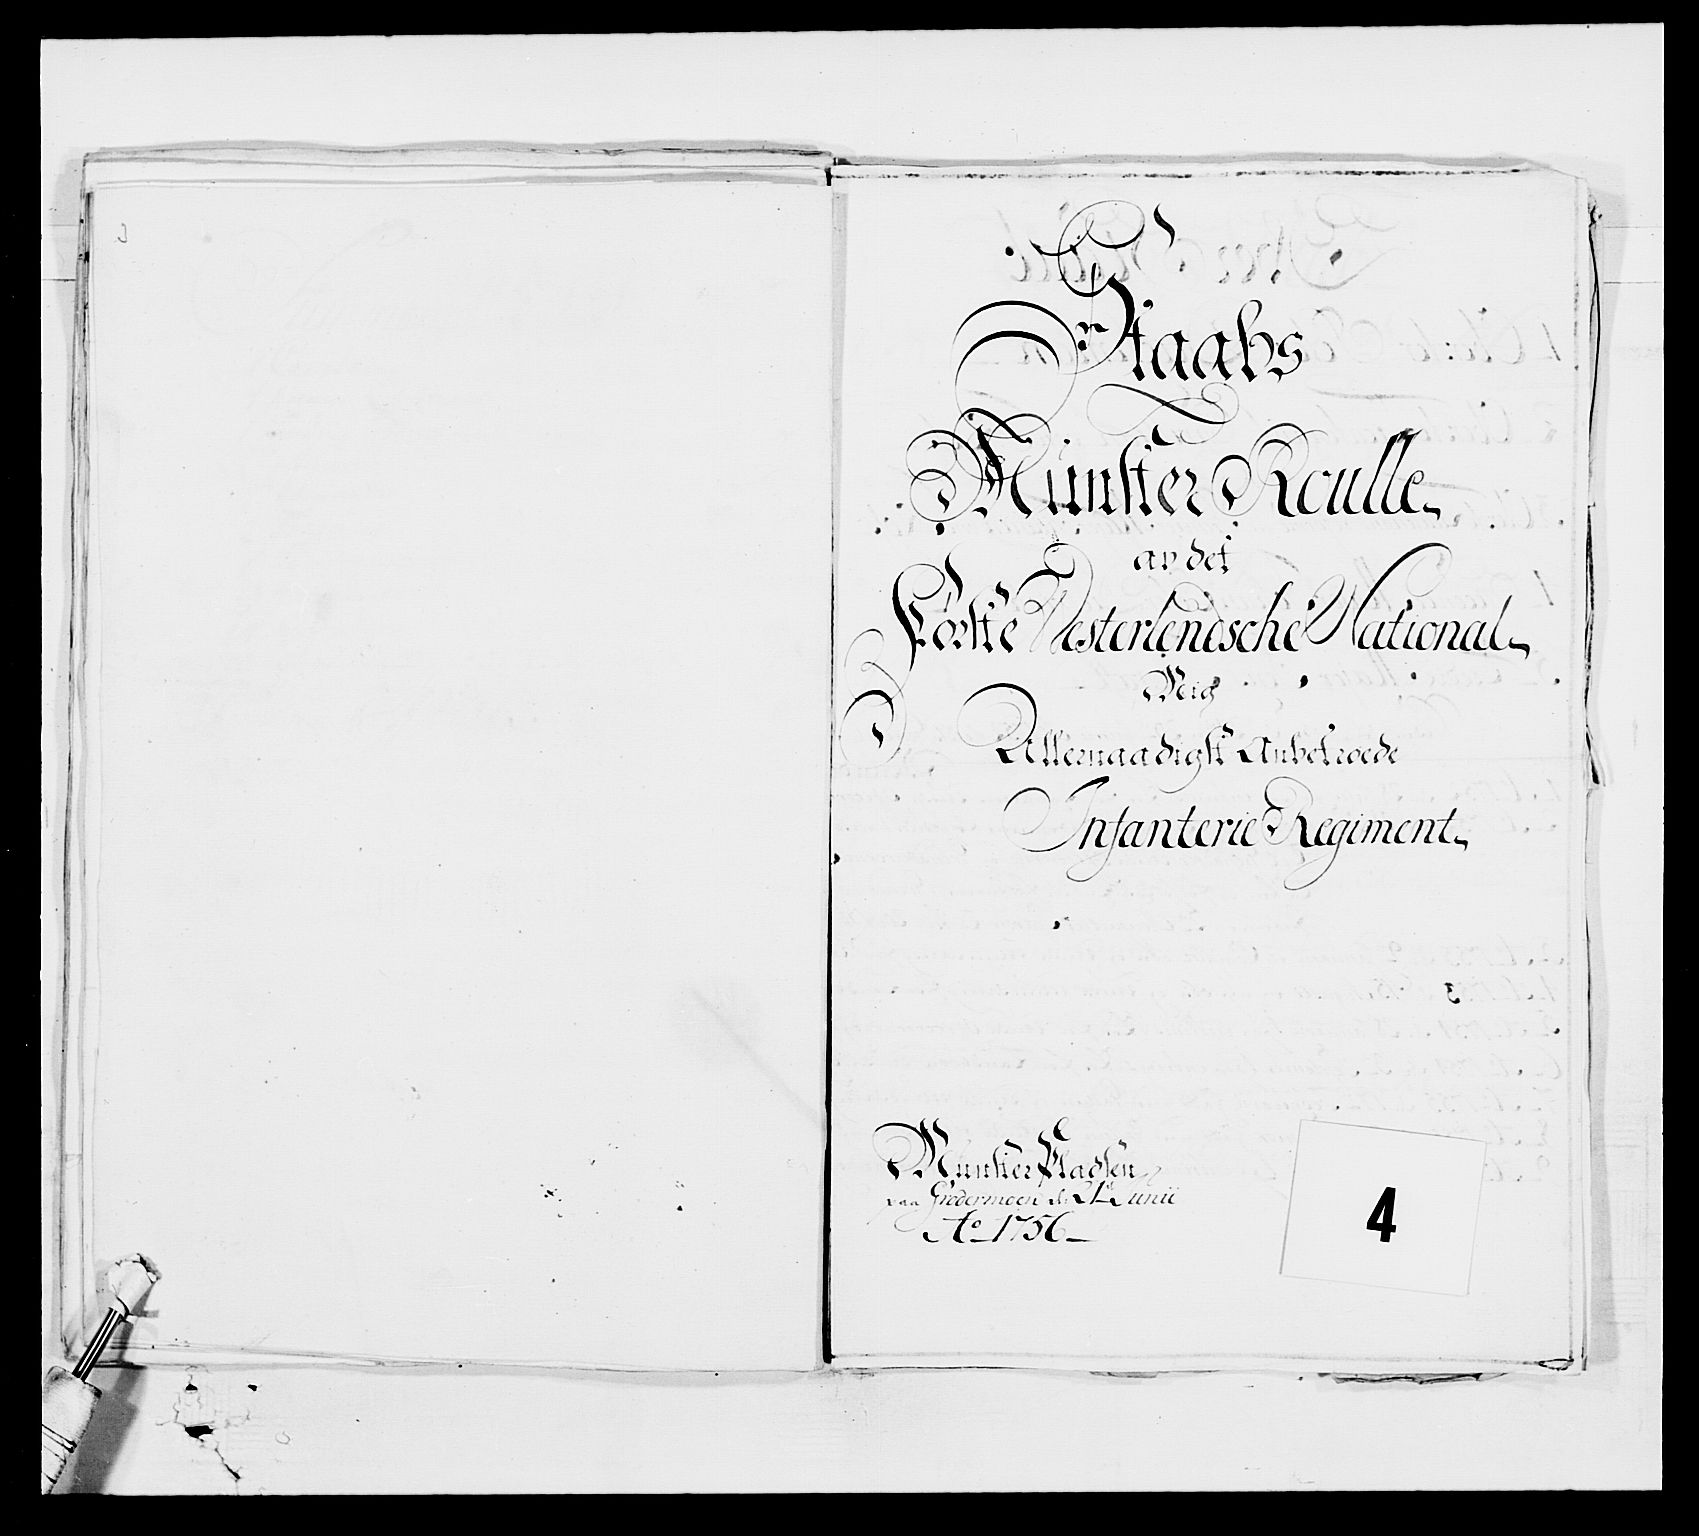 Staabs
Munster Roulle
av det
Første Vesterlendsche National
Mig
Allernaadigst Anbetroede
Infanterie Regiment
Munster Pladsen
paa Grødermoen d: 21t Junii
Ao 1756
4